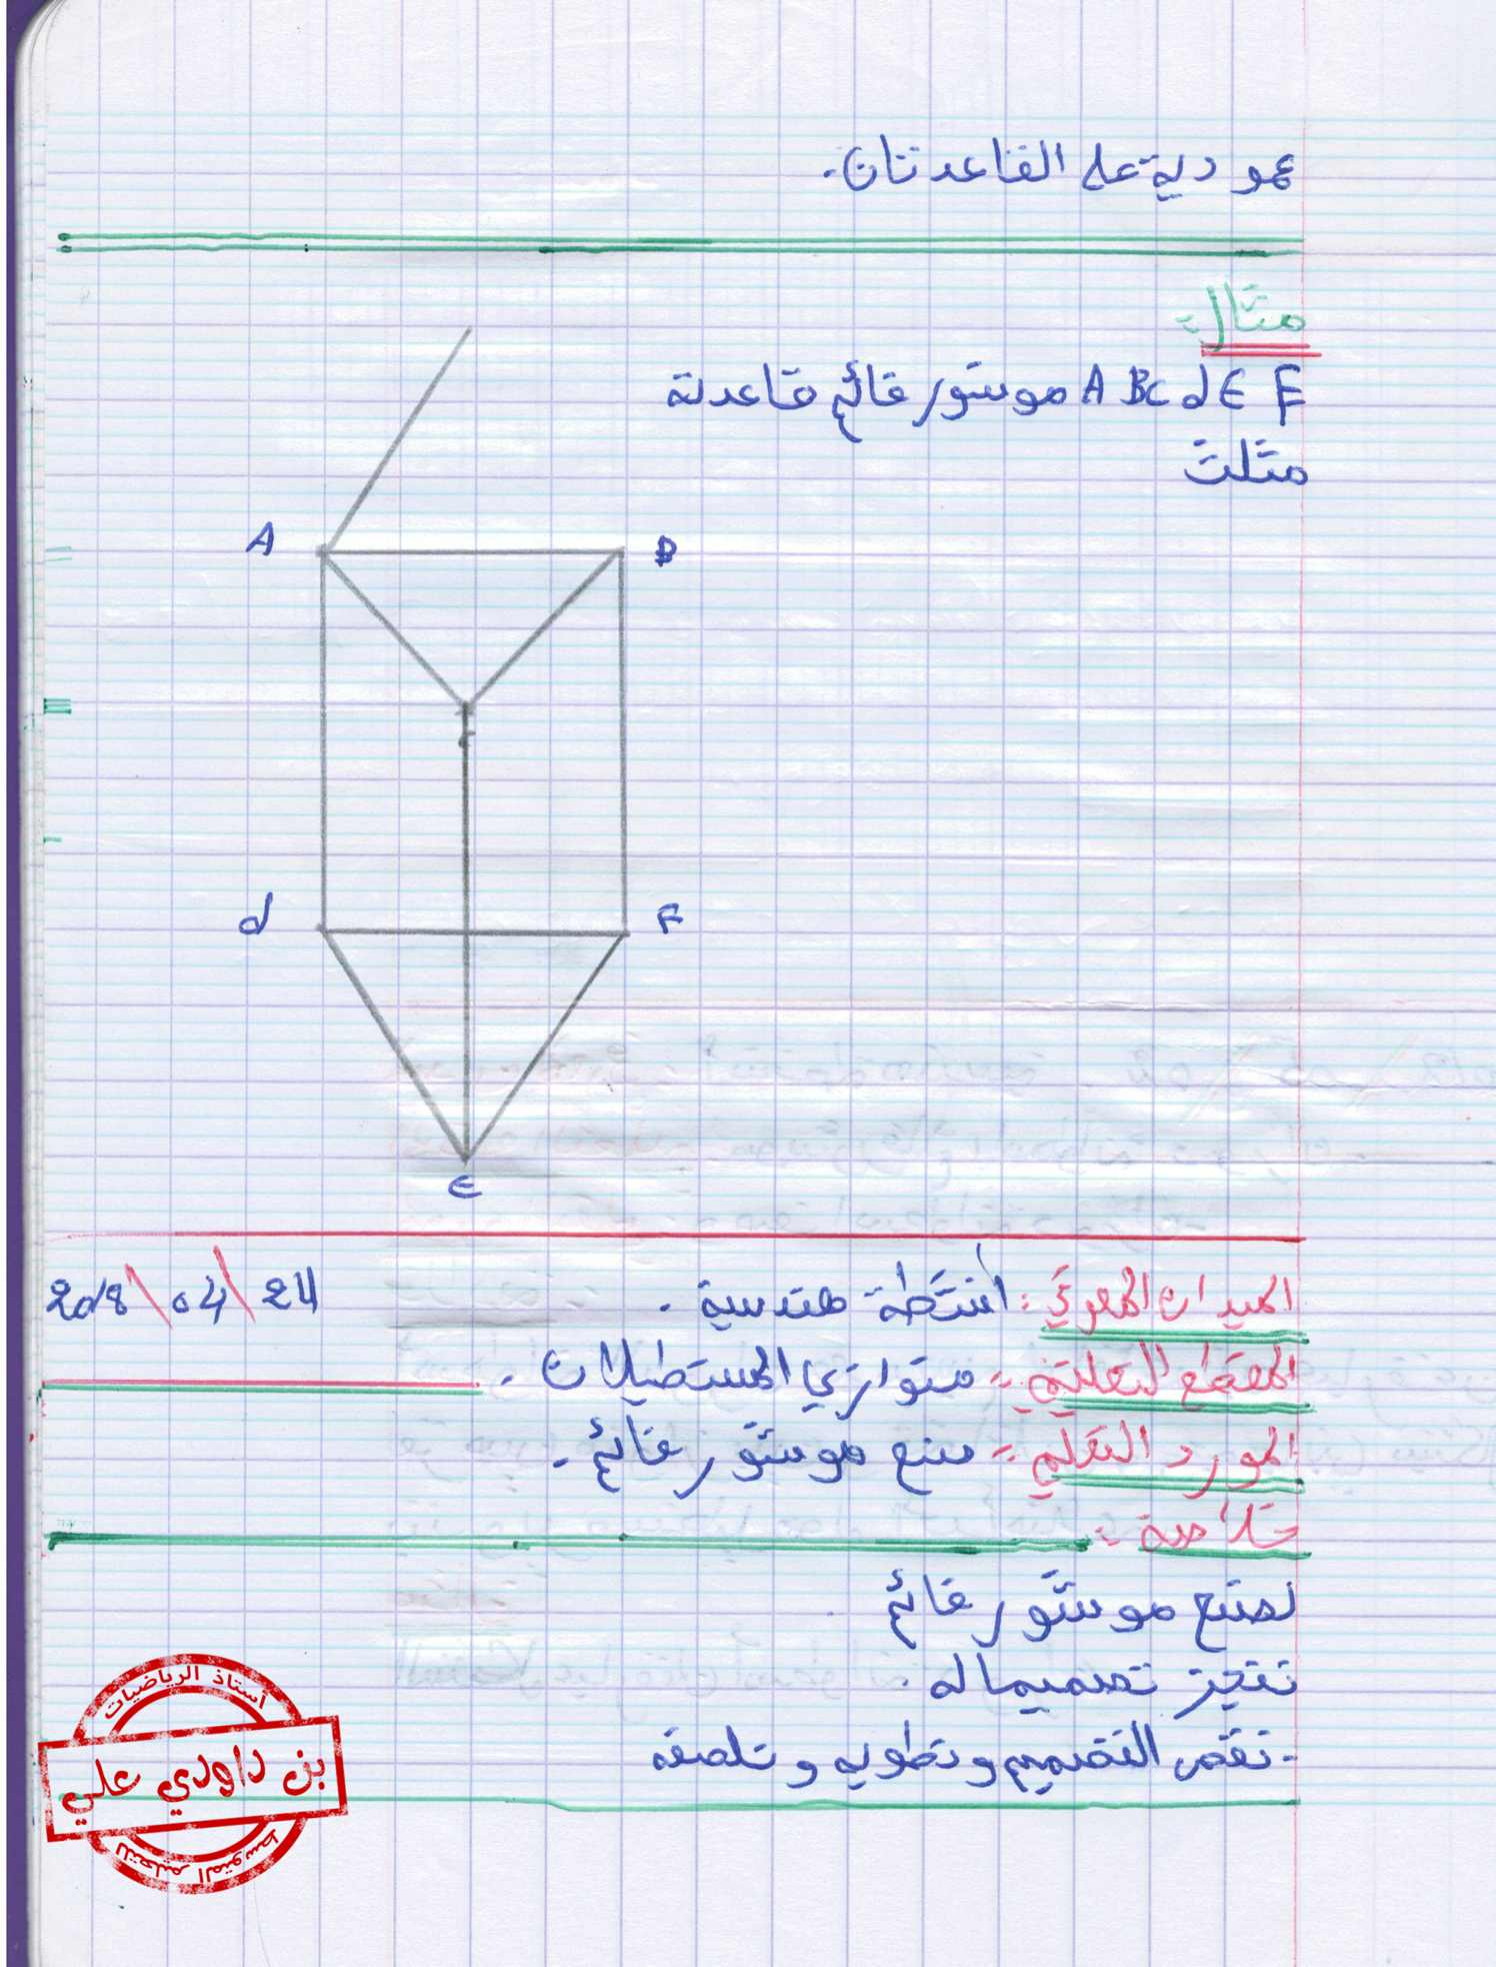 عمودية على القاعدتان.
مثال:
A B c d E F موشور قائم قاعدته
مثلث
A
B
c
d
F
E
الميدان المعرفي: أنشطة هندسية. 24/04/2018
المقطع التعلمي: متوازي المستطيلات.
المورد التعلمي: صنع موشور قائم.
خلاصة:
لصنع موشور قائم
ننجز تصميما له.
- نقص التصميم ونطويه و نلصقه
أستاذ الرياضيات
بن داودي علي
للتعليم المتوسط